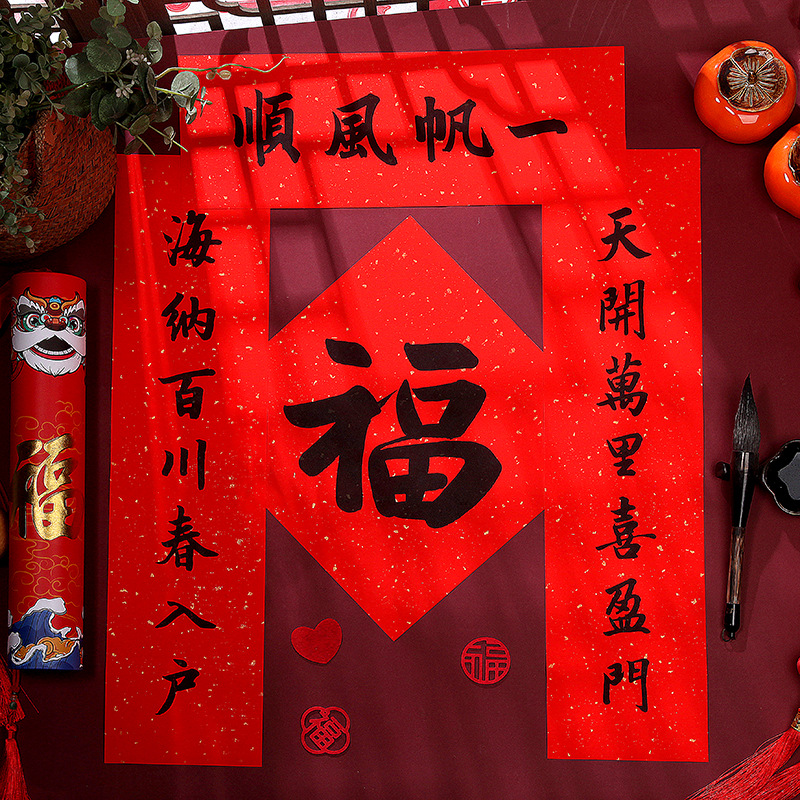 一帆風順
天開萬里喜盈門
海納百川春入户
福
福
福
福